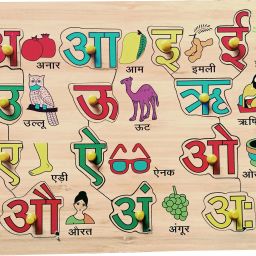 अ अनार आ आम इ इमली ई
उ उल्लू ऊ ऊट ऋ
ए एडी ऐ ऐनक ओ
औ औरत अं अंगूर अः